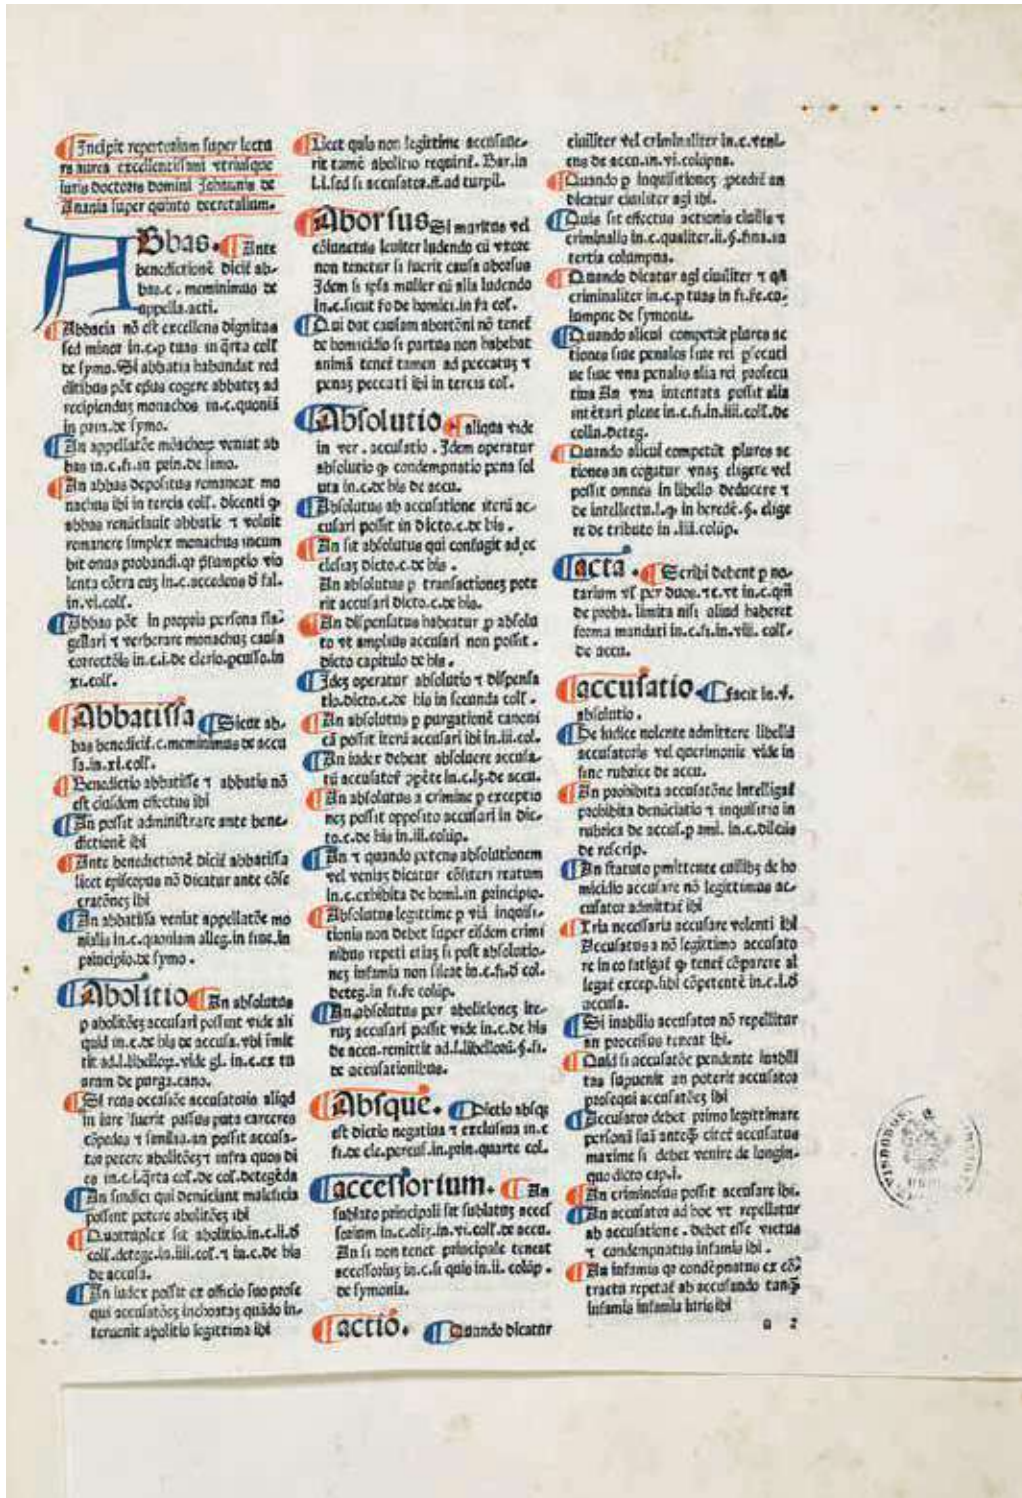 Incipit repertorium super lectu
ra aurea excellentissimi vtriusque
iuris doctoris domini Johannis de
Anania super quinto decretalium.
ABbas. Ante
benedictionē dicit̄ ab-
bas.c. meminimus de
appella.acti.
Abbacia nō est excellens dignitas
sed minor in.c.p tuas in q̄rta coll̄
de symo. Si abbatia habundat red
ditibus pōt ep̄us cogere abbateȝ ad
recipiendus monachos in.c.quoniā
in prin.de symo.
An appellatōe mōachoꝝ veniat ab
bas in.c.fi.in prin.de simo.
An abbas depositus remaneat mo
nachus ibi in tercia coll̄. dicenti ꝙ
abbas renūciauit abbatie ⁊ voluit
remanere simplex monachus incum
bit onus probandi.qr p̄sumptio vio
lenta cōtra euȝ in.c.accedens d̄ fal.
in.vi.coll̄.
Abbas pōt in propria persona fla-
gellari ⁊ verberare monachuȝ causa
correctōis in.c.i.de cleric.pcusso.in
xi.coll̄.
Abbatissa Sicut ab-
bas benedicit̄.c.meminimus de accu
sa.in.xi.coll̄.
Benedictio abbatisse ⁊ abbatis nō
est eiusdem effectus ibi
An possit administrare ante bene-
dictionē ibi
Ante benedictionē dicit̄ abbatissa
licet episcopus nō dicatur ante cōse
cratōneȝ ibi
An abbatissa veniat appellatōe mo
nialis in.c.quoniam alleg.in fine.in
principio.de symo.
Abolitio An absolutus
p abolitōeȝ accusari possint vide ali
quid in.c.de his de accusa.vbi rmit
tit ad.l.libelloꝝ.vide gl. in.c.ex tu
arum de purga.cano.
Si reus occasiōe accusatoris aliqd
in iure fuerit passus puta carceres
cōpedes ⁊ similia.an possit accusa-
tor petere abolitōeȝ ⁊ infra quos di
es in.c.i.q̄rta col̄.de col̄.detegēda
An sindici qui denūciant maleficia
possint petere abolitōeȝ ibi
Quotruplex sit abolitio.in.c.ii.d̄
coll̄.detege.in.iiii.col̄. ⁊ in.c.de his
de accusa.
An iudex possit ex officio suo prose
qui accusatōeȝ inchoataȝ quādo in-
teruenit abolitio legittima ibi
Licet quis non legittime accusaue-
rit tamē abolitio requirit̄. Bar.in
l.i.sed si accusator.ff.ad turpil.
Aborsus Si maritus vel
cōiunctus leuiter ludendo cū vxore
non tenetur si fuerit causa aborsus
Idem si ipsa mulier cū alia ludendo
in.c.sicut
Qui dat causam abortōni nō tenet̄
de homicidio si partus non habebat
animā tenet̄ tamen ad peccatuȝ ⁊
penaȝ peccati ibi in tercia col̄.
Absolutio aliqua vide
in ver. accusatio. Idem operatur
absolutio ꝙ condempnatio pena sol
uta in.c.de his de accu.
Absolutus ab accusatione iterū ac-
cusari possit in dicto.c.de his.
An sit absolutus qui confugit ad ec
clesiaȝ dicto.c.de his.
An absolutus p transactioneȝ pote
rit accusari dicto.c.de his.
An dispensatus habeatur p absolu
to vt amplius accusari non possit.
dicto capitulo de his.
Ideȝ operatur absolutio ⁊ dispensa
tio.dicto.c.de his in secunda coll̄.
An absolutus p purgationē canoni
cā possit iterū accusari ibi in.iii.col.
An iudex debeat absoluere accusa-
tū accusator̄ ppēte in.c.lȝ.de accu.
An absolutus a crimine p exceptio
neȝ possit opposito accusari in dic-
to.c.de his in.iii.colūp.
An ⁊ quando petens absolutionem
vel veniaȝ dicatur cōfiteri reatum
in.c.exhibita de homi.in principio.
Absolutus legittime p viā inquisi-
tionis non debet super eisdem crimi
nibus repeti etiaȝ si post absolutio-
neȝ infamia non sileat in.c.fi.d̄ col.
deteg.in fi.fe colūp.
An absolutus per abolitioneȝ ite-
ruȝ accusari possit vide in.c.de his
de accu.remittit ad.l.libelloꝝ.§.fi.
de accusationibus.
Absque. Dictio absqȝ
est dictio negatiua ⁊ exclusiua in.c
fi.de cle.percus̄.in.prin.quarte col.
accessorium. An
sublato principali sit sublatuȝ acces
sorium in.c.oliȝ.in.vi.coll̄.de accu.
An si non tenet principale teneat
accessoriuȝ in.c.si quis in.ii. colūp.
de symonia.
actio. Quando dicatur
ciuiliter vel criminaliter in.c.veni-
ens de accu.in.vi.colūpna.
Quando p inquisitioneȝ pcedit̄ an
dicatur ciuiliter agi ibi.
Quis sit effectus actionis ciuilis ⁊
criminalis in.c.qualiter.ii.§.fina.in
tertia columpna.
Quando dicatur agi ciuiliter ⁊ qn̄
criminaliter in.c.p tuas in fi.fe.co-
lumpne de symonia.
Quando alicui competūt plures ac
tiones siue penales siue rei p̄secuti
ue siue vna penalis alia rei prosecu
tiua An vna intentata possit alia
intētari plene in.c.fi.in.iiii.coll̄.de
collu.deteg.
Quando alicui competūt plures ac
tiones an cogatur vnaȝ eligere vel
possit omnes in libello deducere ⁊
de intellectu.l.ꝙ in herede.§. elige
re de tributo in .iii.colūp.
acta. Scribi debent p no-
tarium vl̄ per duos.⁊c.vt in.c.qm̄
de proba. limita nisi aliud haberet
forma mandati in.c.fi.in.viii. coll̄.
de accu.
accusatio. facit in.v̄.
absolutio.
De iudice nolente admittere libellū
accusatoris vel querimonie vide in
fine rubrice de accu.
An prohibita accusatōne intelligat̄
prohibita denūciatio ⁊ inquisitio in
rubrica de accus̄.p ami. in.c.dilectus
de rescrip.
An statuto pmittente cuilibȝ de ho
micidio accusare nō legittimus ac-
cusator admittat̄ ibi
Tria necessaria accusare volenti ibi
Accusatus a nō legittimo accusato
re in eo fatigat̄ ꝙ tenet̄ cōparere al
legat̄ excep.sibi cōpetentē in.c.i.d̄
accusa.
Si inabilis accusator nō repellitur
an processus teneat ibi.
Quid si accusatōe pendente inabili
tas supuenit an poterit accusator
prosequi accusatōeȝ ibi
Accusator debet primo legittimare
personā suā anteqȝ citet̄ accusatus
maxime si debet venire de longin-
quo dicto cap.i.
An criminosus possit accusare ibi.
An accusator ad hoc vt repellatur
ab accusatione. debet esse victus
⁊ condempnatus infamis ibi.
An infamis qr condēpnatus ex cō-
tractu repetat̄ ab accusando tanqȝ
infamis infamia iuris ibi
a 2